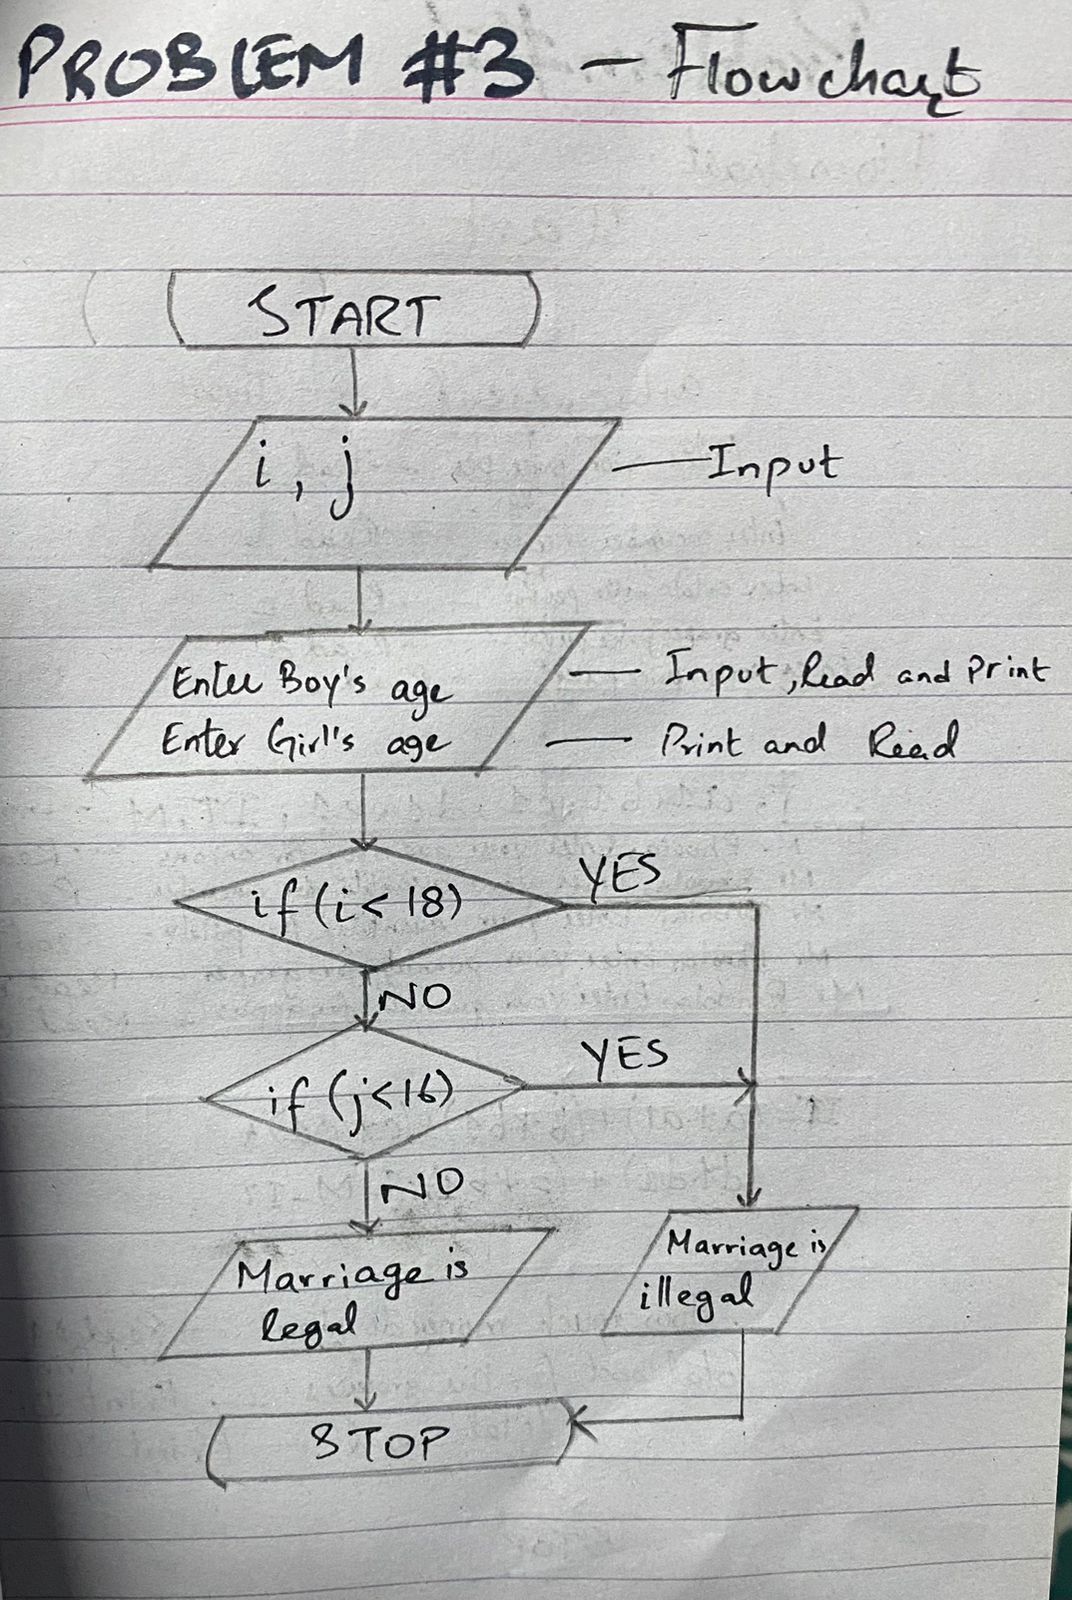 PROBLEM #3 - Flowchart
START
i, j
Input
Enter Boy's age
Input, Read and Print
Enter Girl's age
Print and Read
if (i < 18)
YES
NO
if (j<16)
YES
NO
Marriage is
legal
Marriage is
illegal
STOP